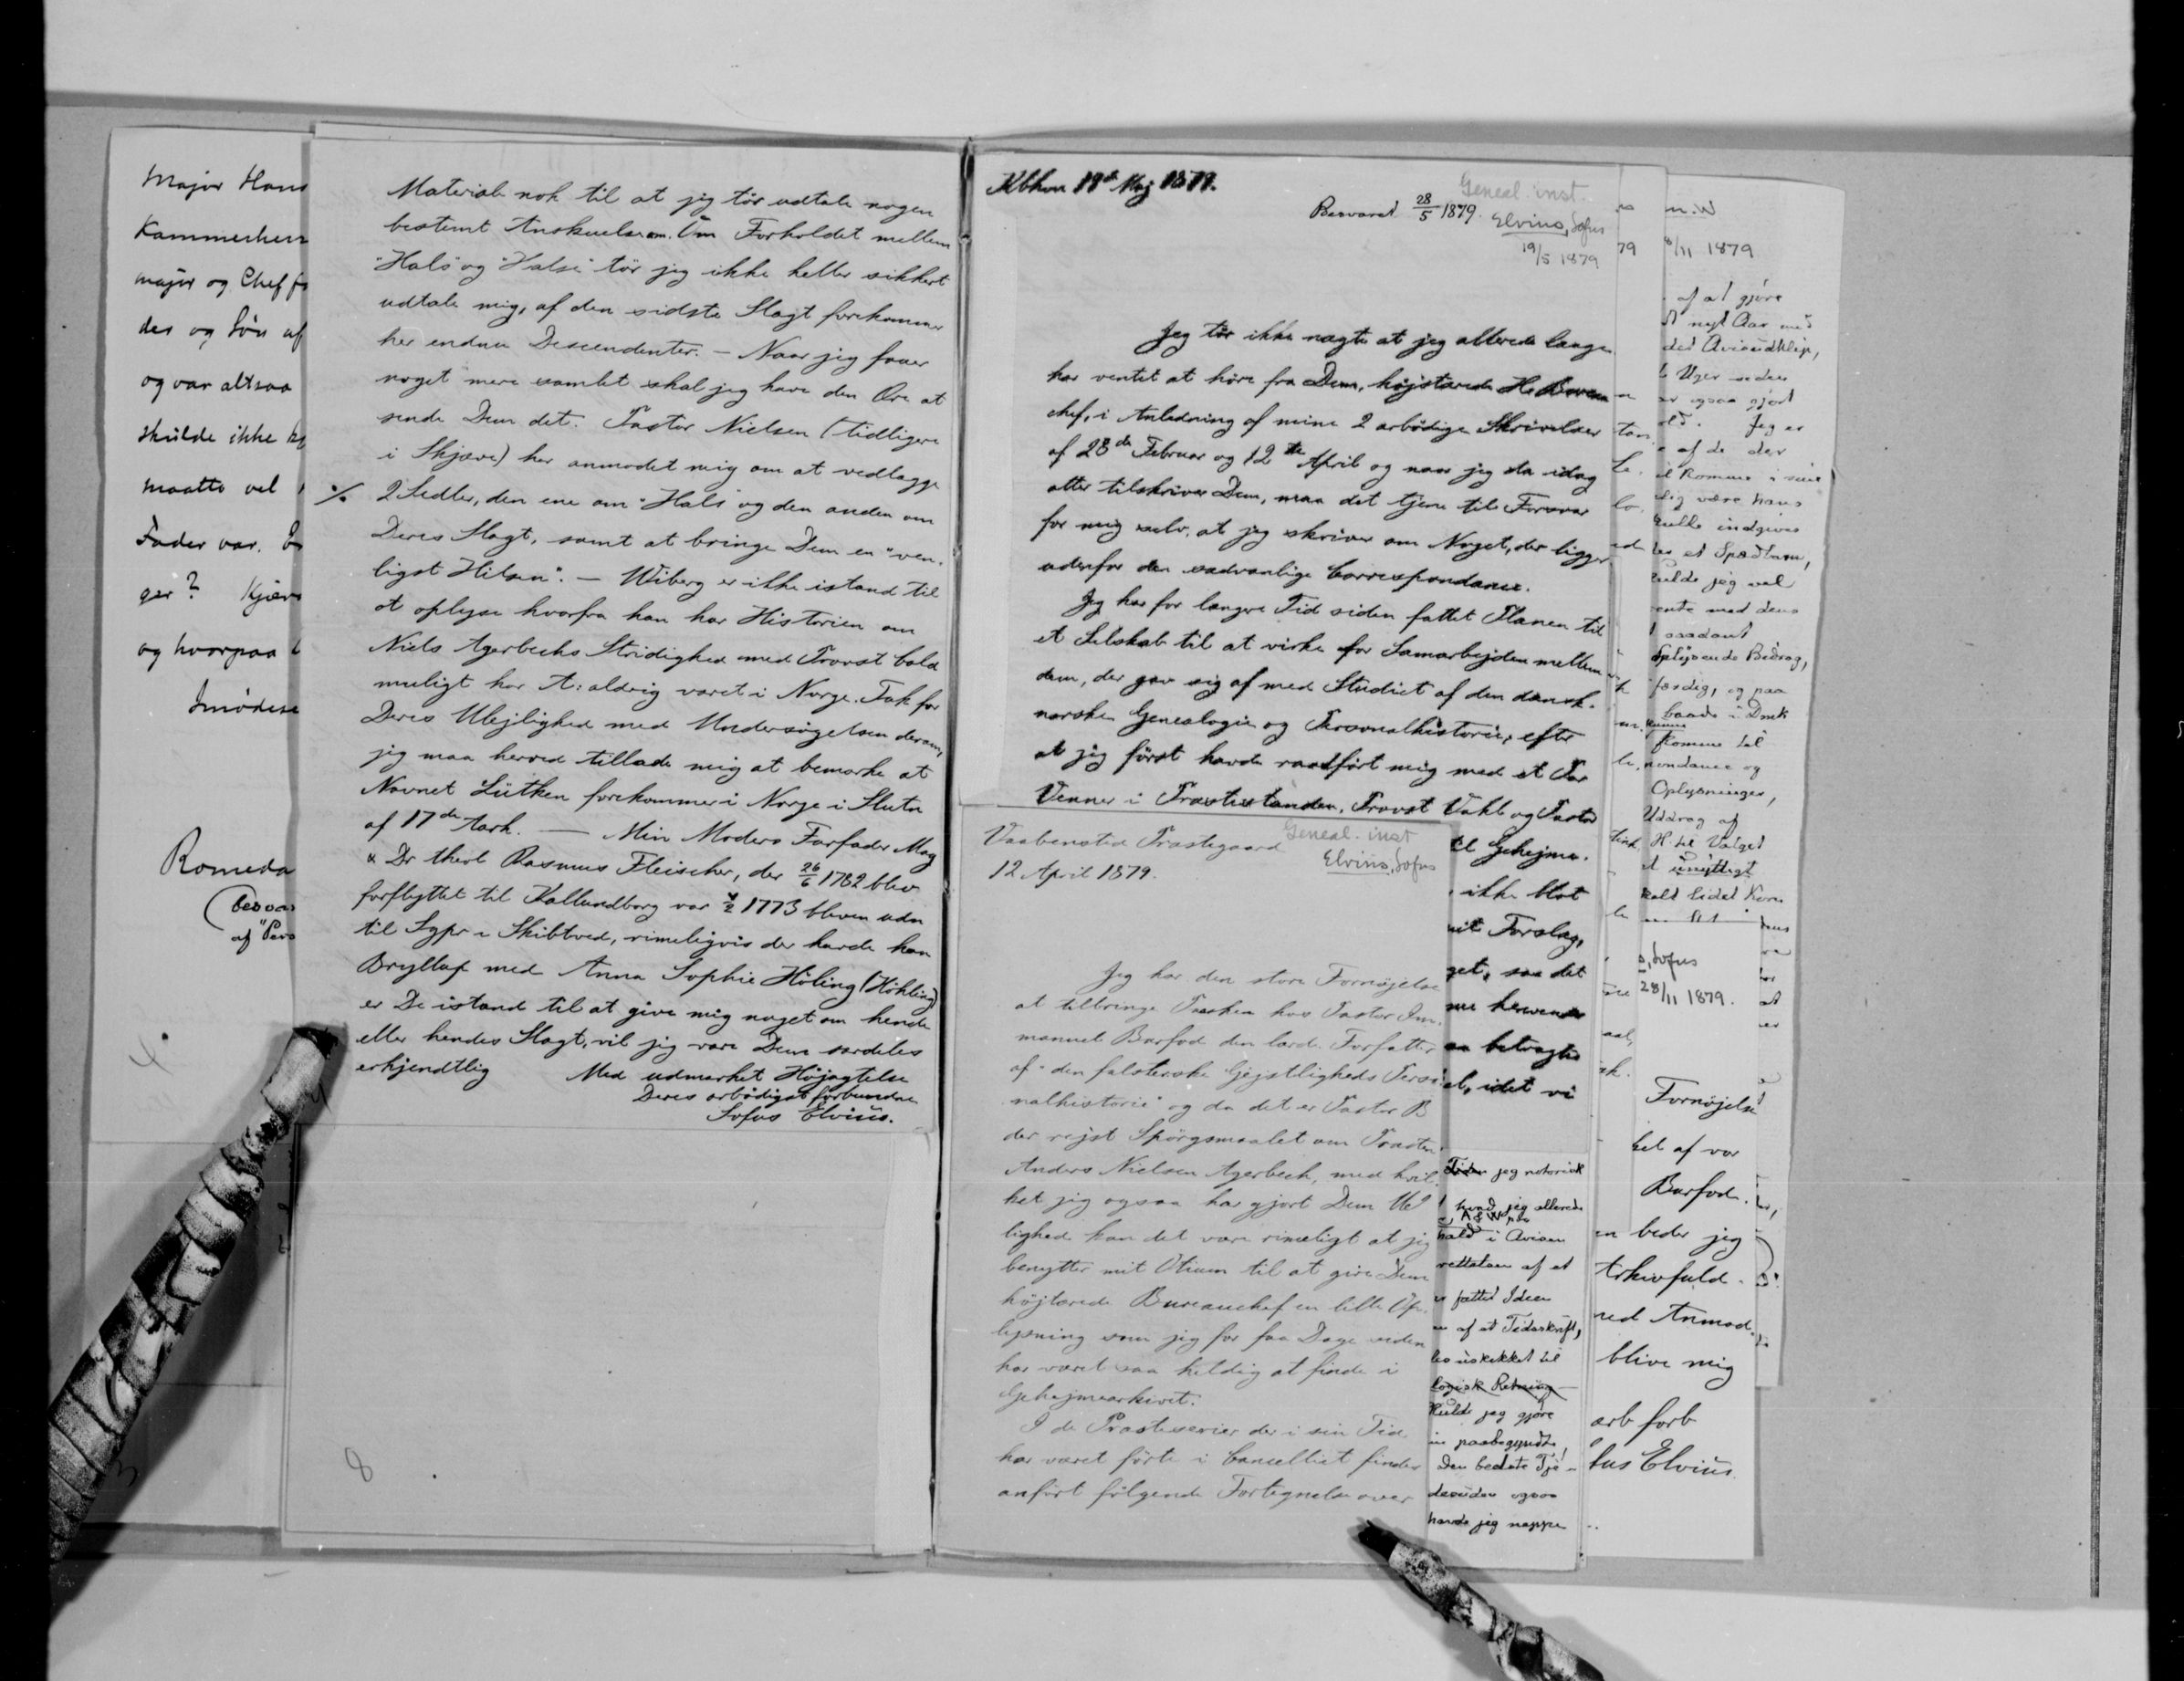 Major Hans
Kammerherr
major og Chef fo
des og Søn af
og var altsaa
skulde ikke
maatte vel
Fader var.
ger? Kjær
og hvorpaa
Imødese
Romeda
(Besvar
af "Pers
4
Materiale nok til at jeg tör udtale nogen
bestemt Anskuelse om. Om Forholdet mellem
"Hals" og "Halse" tör jeg ikke heller sikkert
udtale mig, af den sidste Slægt forekommer
her endnu Descendenter. – Naar jeg faaer
noget mere samlet skal jeg have den Ære at
sende Dem det. Pastor Nielsen (tidligere
i Skjæve) har anmodet mig om at vedlægge
% 2 Sedler, den ene om "Hals" og den anden om
Deres Slægt, samt at bringe Dem en "ven-
ligst Hilsen". – Wiberg er ikke istand til
at oplyse hvorfra han har Historien om
Niels Agerbechs Stridighed med Provst Cold
muligt har A: aldrig været i Norge. Tak for
Deres Ulejlighed med Undersögelsen derom,
jeg maa herved tillade mig at bemærke at
Navnet Lütken forekommer i Norge i Slutn
af 17de Aarh. — Min Moders Farfader Mag
& Dr theol Rasmus Fleischer, der 26/6 1782 blev
forflyttet til Kallundborg var 4/2 1773 bleven udn
til Sgpr i Skibtved, rimeligvis der havde han
Bryllup med Anna Sophie Höling (Höhling)
er De istand til at give mig noget om hende
eller hendes Slægt, vil jeg være Dem særdeles
erkjendtlig Med udmærket Höjagtelse
Deres ærbödigst forbundne
Sofus Elvius.
8
Kbhvn 19de Maj 1879.
Besvaret 28/5 1879.
Geneal. inst.
Elvius, Sofus
19/5 1879
Jeg tör ikke nægte at jeg allerede længe
har ventet at höre fra Dem, höjstærede Hr Bureau
chef, i Anledning af mine 2 ærbödige Skrivelser
af 28de Februar og 12te April og naar jeg da idag
atter tilskriver Dem, maa det tjene til Forsvar
for mig selv, at jeg skriver om Noget, der ligger
udenfor den sædvanlige Correspondance.
Jeg har for længere Tid siden fattet Planen til
et Selskab til at virke for Samarbejden mellem
dem, der gav sig af med Studiet af den dansk-
norske Genealogie og Personalhistorie, efter
at jeg först havde raadfört mig med et Par
Venner i Præstestanden, Provst Vahl og Pastor
til Gehejme-
ikke blot
mit Forslag,
get, saa det
betragte
idet vi
Vaabensted Præstegaard
12 April 1879.
Geneal. inst
Elvius, Sofus
Jeg har den store Fornöjelse
at tilbringe Paasken hos Pastor Im-
manuel Barfod den lærde Forfatter
af "den falsterske Gejstligheds Perso-
nalhistorie" og da det er Pastor B
der rejst Spörgsmaalet om Præsten
Anders Nielsen Agerbech, med hvil-
ket jeg ogsaa har gjort Dem Ulej
lighed kan det være rimeligt at jeg
benytter mit Otium til at give Dem
höjtærede Bureauchef en lille Op-
lysning som jeg for faa Dage siden
har været saa heldig at finde i
Gehejmearkivet.
I de Præsteserier der i sin Tid
har været förte i Cancelliet findes
anfört fölgende Fortegnelse over
Tiden jeg notorisk
hvad jeg allerede
i Avisen
rettelsen af et
fattet Ideen
af et Tidsskrift,
logisk Retning
skulde jeg gjöre
paabegyndte,
Den bedste Tje-
desuden ogsaa
havde jeg næppe
79
n. W
8/11 1879
af at gjöre
nyt Aar med
det Avisudklip,
Uger siden
ogsaa gjort
Jeg er
af de der
være hans
skulle indgives
et Spædbarn,
skulde jeg vel
med dens
saadant
Oplysende Bidrag,
færdig, og paa
baade i Druk
komme til
pondance og
Oplysninger,
Uddrag af
H. til Valget
et unyttigt
, Sofus
28/11 1879.
Fornöjelse
ket af vor
Barfod.
en beder jeg
Arkivfuld-
med Anmod-
blive mig
ærb forb
fus Elvius